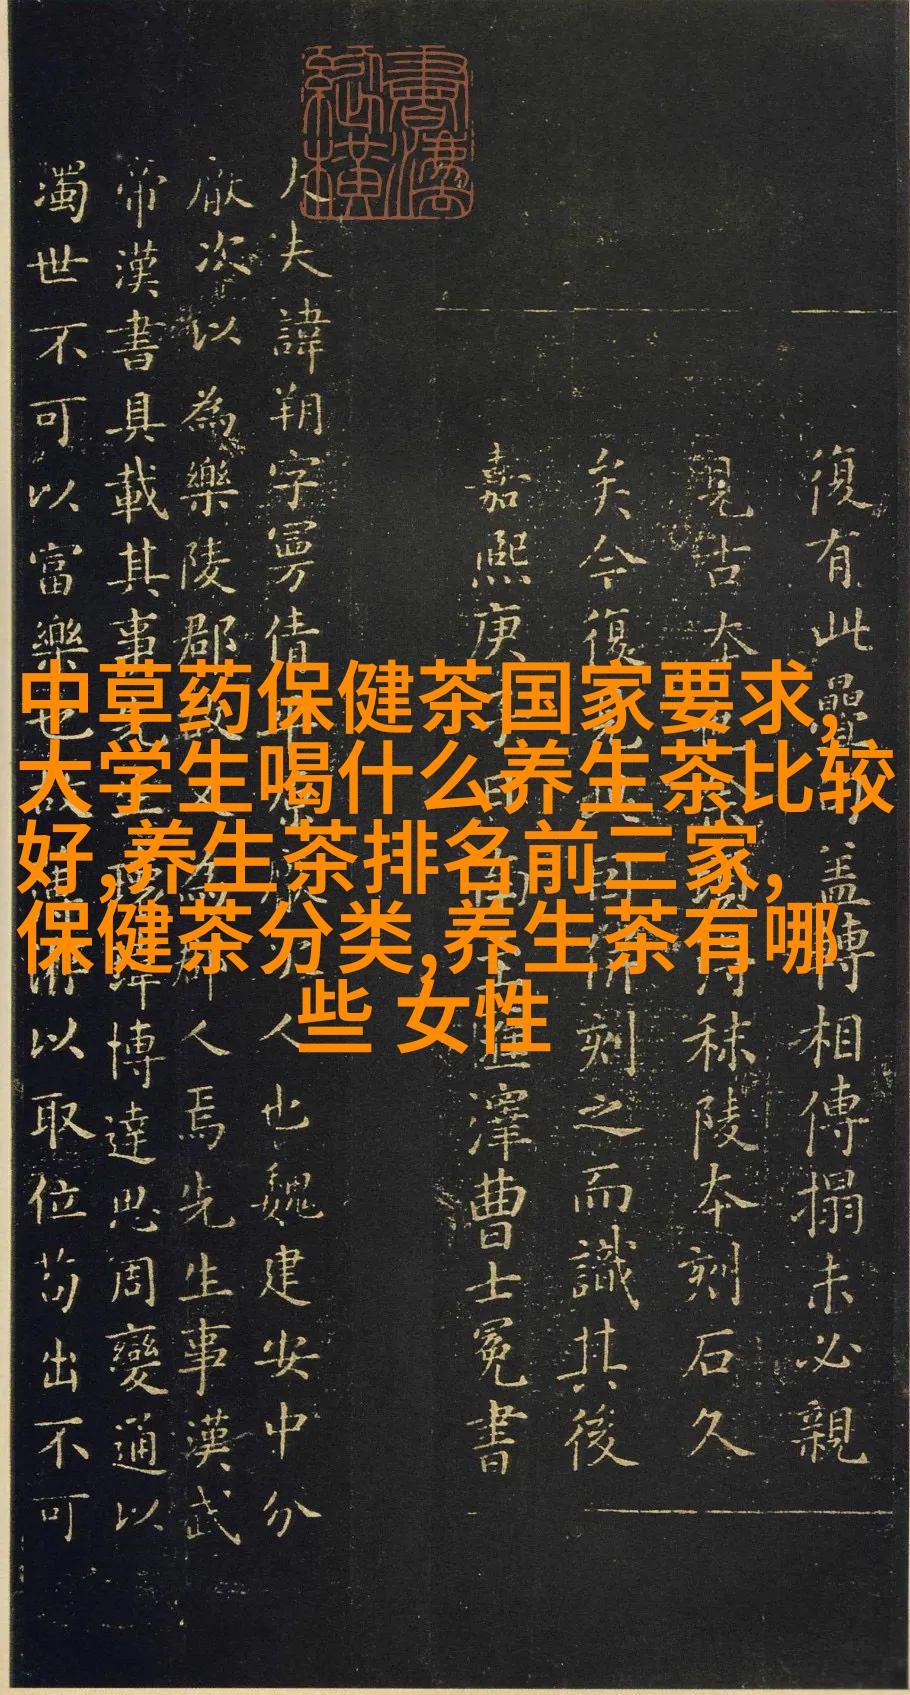 中草药保健茶国家要求,
大学生喝什么养生茶比较
好,养生茶排名前三家,
保健茶分类,养生茶有哪
些 女性
復有此蓋轉相傳搨未必親
見古本秣陵本刻石久
矣今復刻之而識其後
嘉熙庚澤曹士冕書
夫諱朔字曼倩人也魏建安中分
厭次以為樂陵郡人焉先生事漢武
帝漢書具載其事博達思周變通以
濁世不可以富樂也以取位苟出不可